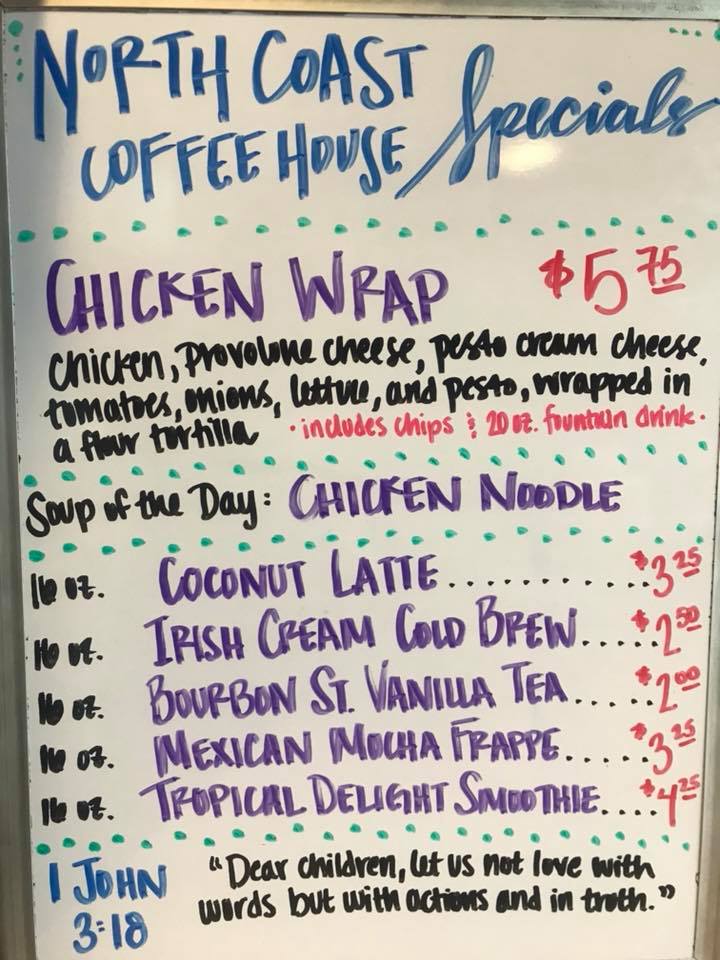 NORTH COAST
COFFEE HOUSE Specials
CHICKEN WRAP $5 75
chicken, provolone cheese, pesto cream cheese,
tomatoes, onions, lettuce, and pesto, wrapped in
a flour tortilla • includes chips & 20 oz. fountain drink •
Soup of the Day: CHICKEN NOODLE
16 oz. COCONUT LATTE........... $3 25
16 oz. IRISH CREAM COLD BREW..... $2 50
16 oz. BOURBON ST. VANILLA TEA..... $2 00
16 oz. MEXICAN MOCHA FRAPPE..... $3 25
16 oz. TROPICAL DELIGHT SMOOTHIE.... $4 25
1 JOHN 3:18
"Dear children, let us not love with
words but with actions and in truth."